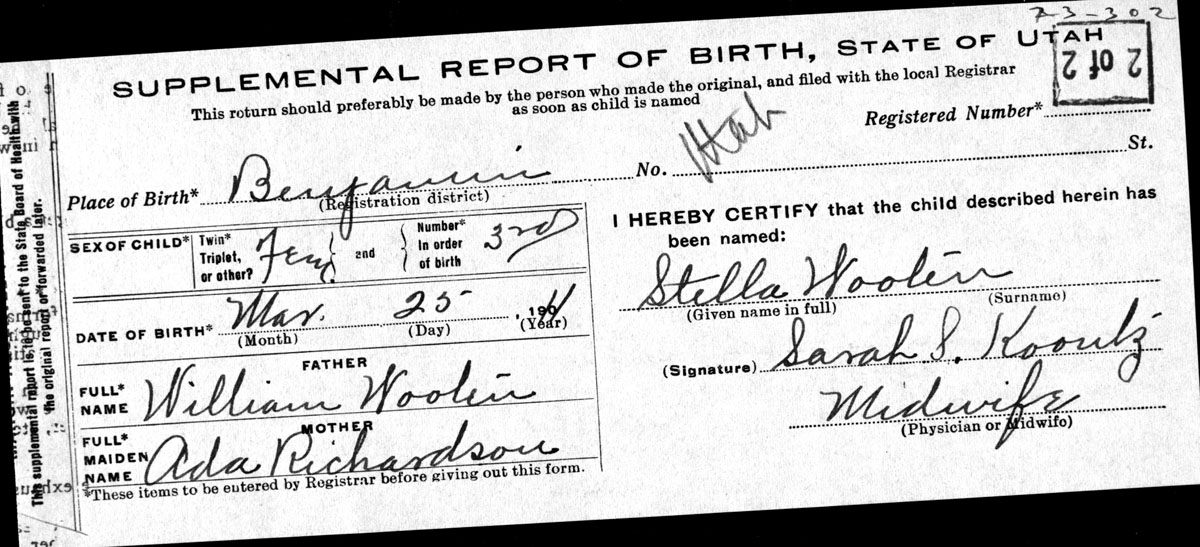 73-302
SUPPLEMENTAL REPORT OF BIRTH, STATE OF UTAH
2 of 2
This return should preferably be made by the person who made the original, and filed with the local Registrar
as soon as child is named
Registered Number*
Place of Birth* Benjamin No. Utah St.
(Registration district)
SEX OF CHILD* Twin* Triplet, or other? Fem and Number* In order of birth 3rd
DATE OF BIRTH* Mar. 25 , 191
(Month) (Day) (Year)
FATHER
FULL* NAME William Woolen
MOTHER
FULL* MAIDEN NAME Ada Richardson
*These items to be entered by Registrar before giving out this form.
I HEREBY CERTIFY that the child described herein has
been named:
Stella Woolen
(Given name in full) (Surname)
(Signature) Sarah S. Koontz
Midwife
(Physician or Midwife)
This supplemental report is to be sent to the State Board of Health with
the original report or forwarded later.